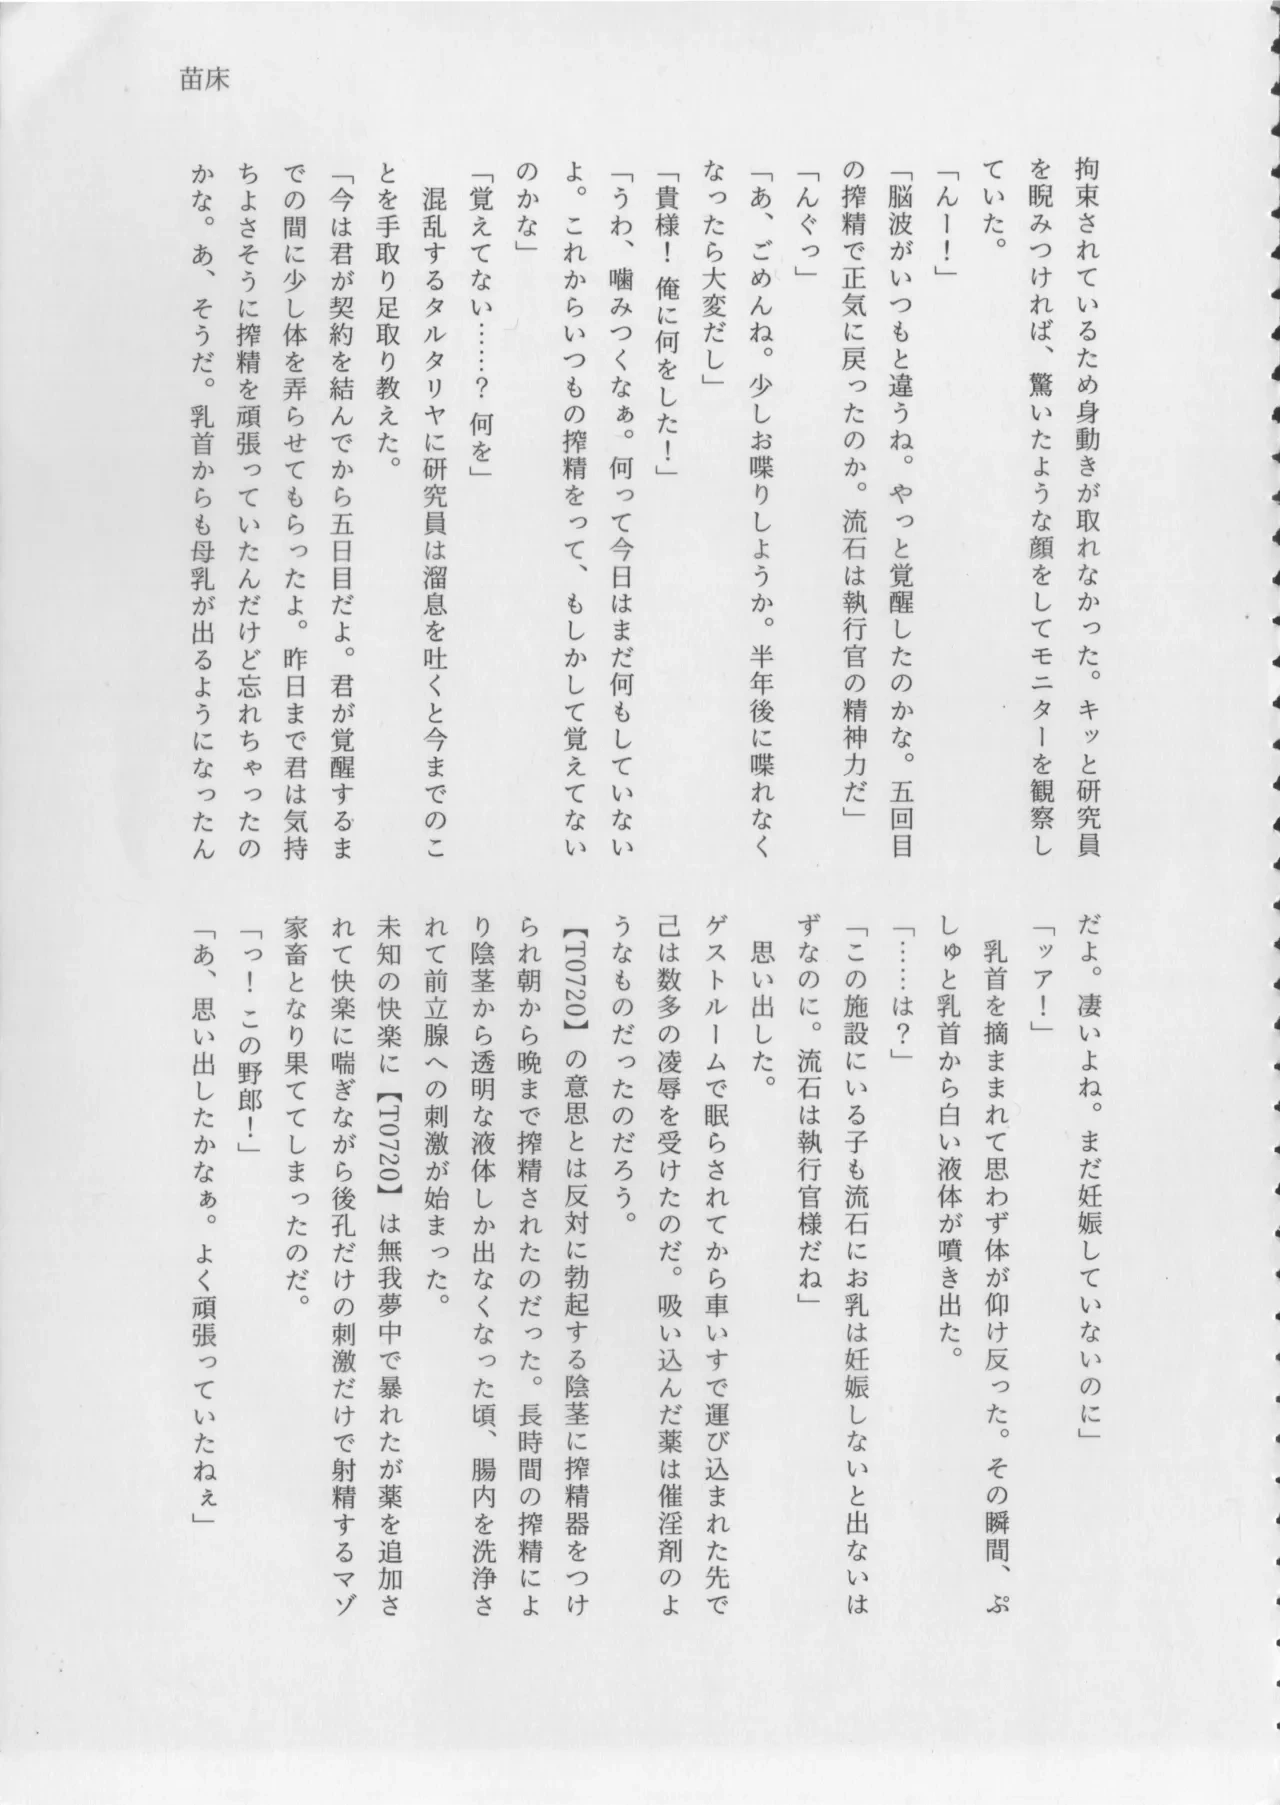 苗床
拘束されているため身動きが取れなかった。キッと研究員
を睨みつければ、驚いたような顔をしてモニターを観察し
ていた。
「んー！」
「脳波がいつもと違うね。やっと覚醒したのかな。五回目
の搾精で正気に戻ったのか。流石は執行官の精神力だ」
「んぐっ」
「あ、ごめんね。少しお喋りしようか。半年後に喋れなく
なったら大変だし」
「貴様！ 俺に何をした！」
「うわ、噛みつくなぁ。何って今日はまだ何もしていない
よ。これからいつもの搾精をって、もしかして覚えてない
のかな」
「覚えてない……？ 何を」
混乱するタルタリヤに研究員は溜息を吐くと今までのこ
とを手取り足取り教えた。
「今は君が契約を結んでから五日目だよ。君が覚醒するま
での間に少し体を弄らせてもらったよ。昨日まで君は気持
ちよさそうに搾精を頑張っていたんだけど忘れちゃったの
かな。あ、そうだ。乳首からも母乳が出るようになったん
だよ。凄いよね。まだ妊娠していないのに」
「ッア！」
乳首を摘ままれて思わず体が仰け反った。その瞬間、ぷ
しゅと乳首から白い液体が噴き出た。
「……は？」
「この施設にいる子も流石にお乳は妊娠しないと出ないは
ずなのに。流石は執行官様だね」
思い出した。
ゲストルームで眠らされてから車いすで運び込まれた先で
己は数多の凌辱を受けたのだ。吸い込んだ薬は催淫剤のよ
うなものだったのだろう。
【T0720】の意思とは反対に勃起する陰茎に搾精器をつけ
られ朝から晩まで搾精されたのだった。長時間の搾精によ
り陰茎から透明な液体しか出なくなった頃、腸内を洗浄さ
れて前立腺への刺激が始まった。
未知の快楽に【T0720】は無我夢中で暴れたが薬を追加さ
れて快楽に喘ぎながら後孔だけの刺激だけで射精するマゾ
家畜となり果ててしまったのだ。
「っ！この野郎！」
「あ、思い出したかなぁ。よく頑張っていたねぇ」